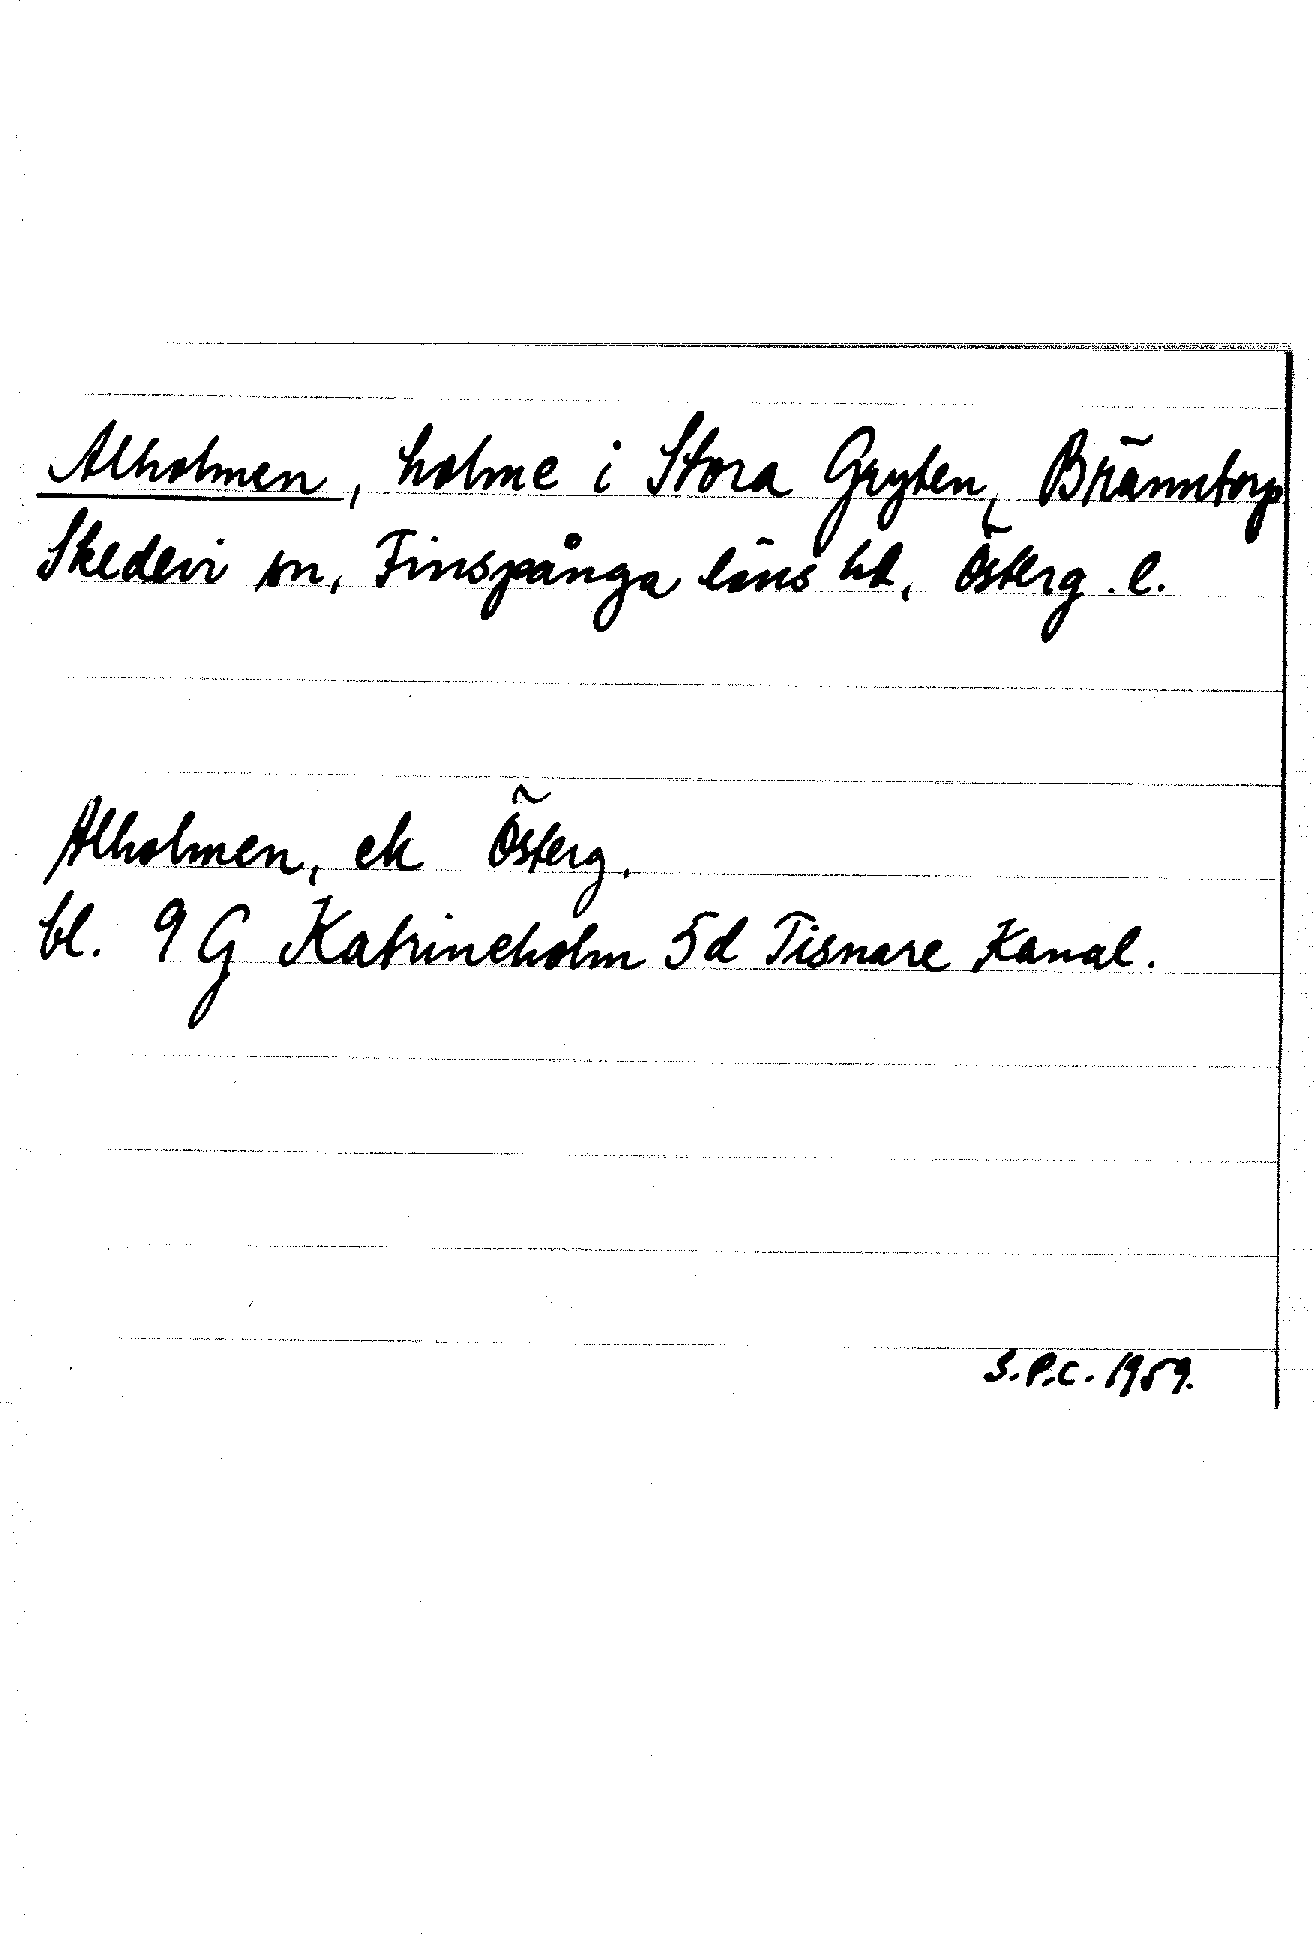 Alholmen, holme i Stora Gryten, Bränntorp
Skedevi sn, Finspånga läns hd, Österg. l.
Alholmen, ek Österg.
bl. 9 G Katrineholm 5d Tisnare Kanal.
S.P.C. 1959.